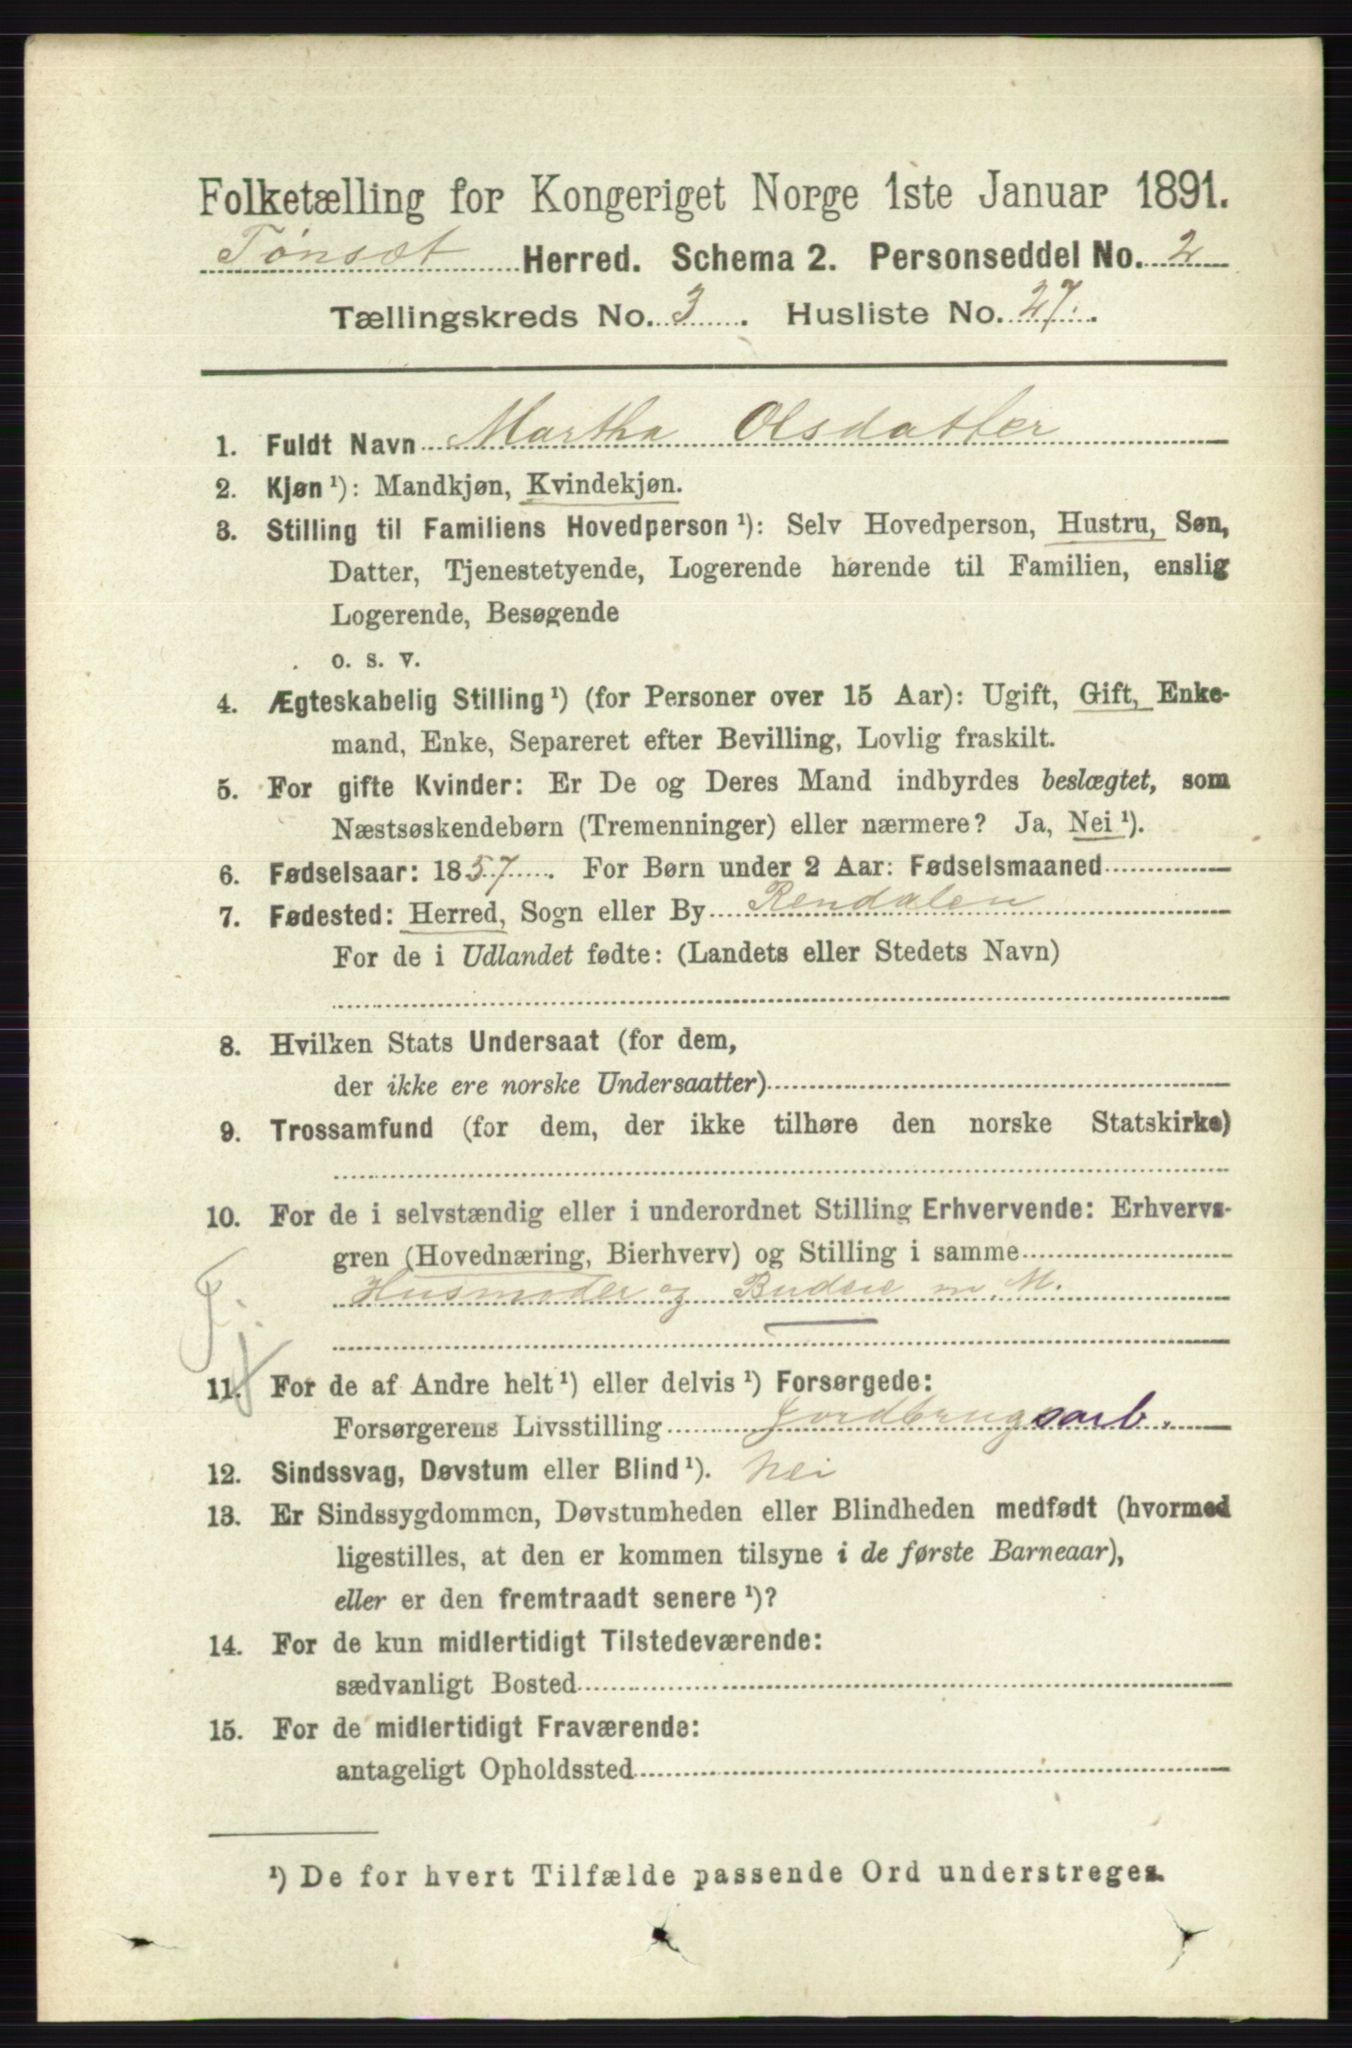 Folketælling for Kongeriget Norge 1ste Januar 1891.
Tønset Herred. Schema 2. Personseddel No. 2
Tællingskreds No. 3. Husliste No. 27.
1. Fuldt Navn Martha Olsdatter
2. Kjøn¹): Mandkjøn, Kvindekjøn.
3. Stilling til Familiens Hovedperson¹): Selv Hovedperson, Hustru, Søn,
Datter, Tjenestetyende, Logerende hørende til Familien, enslig
Logerende, Besøgende
o. s. v.
4. Ægteskabelig Stilling¹) (for Personer over 15 Aar): Ugift, Gift, Enke-
mand, Enke, Separeret efter Bevilling, Lovlig fraskilt.
5. For gifte Kvinder: Er De og Deres Mand indbyrdes beslægtet, som
Næstsøskendebørn (Tremenninger) eller nærmere? Ja, Nei¹).
6. Fødselsaar: 1857. For Børn under 2 Aar: Fødselsmaaned
7. Fødested: Herred, Sogn eller By Rendalen
For de i Udlandet fødte: (Landets eller Stedets Navn)
8. Hvilken Stats Undersaat (for dem,
der ikke ere norske Undersaatter)
9. Trossamfund (for dem, der ikke tilhøre den norske Statskirke)
10. For de i selvstændig eller i underordnet Stilling Erhvervende: Erhvervs-
gren (Hovednæring, Bierhverv) og Stilling i samme
Husmoder og Budeie m. M.
F.
11. For de af Andre helt¹) eller delvis¹) Forsørgede:
Forsørgerens Livsstilling Jordbrugsarb.
12. Sindssvag, Døvstum eller Blind¹). Nei
13. Er Sindssygdommen, Døvstumheden eller Blindheden medfødt (hvormed
ligestilles, at den er kommen tilsyne i de første Barneaar),
eller er den fremtraadt senere¹)?
14. For de kun midlertidigt Tilstedeværende:
sædvanligt Bosted
15. For de midlertidigt Fraværende:
antageligt Opholdssted
¹) De for hvert Tilfælde passende Ord understreges.